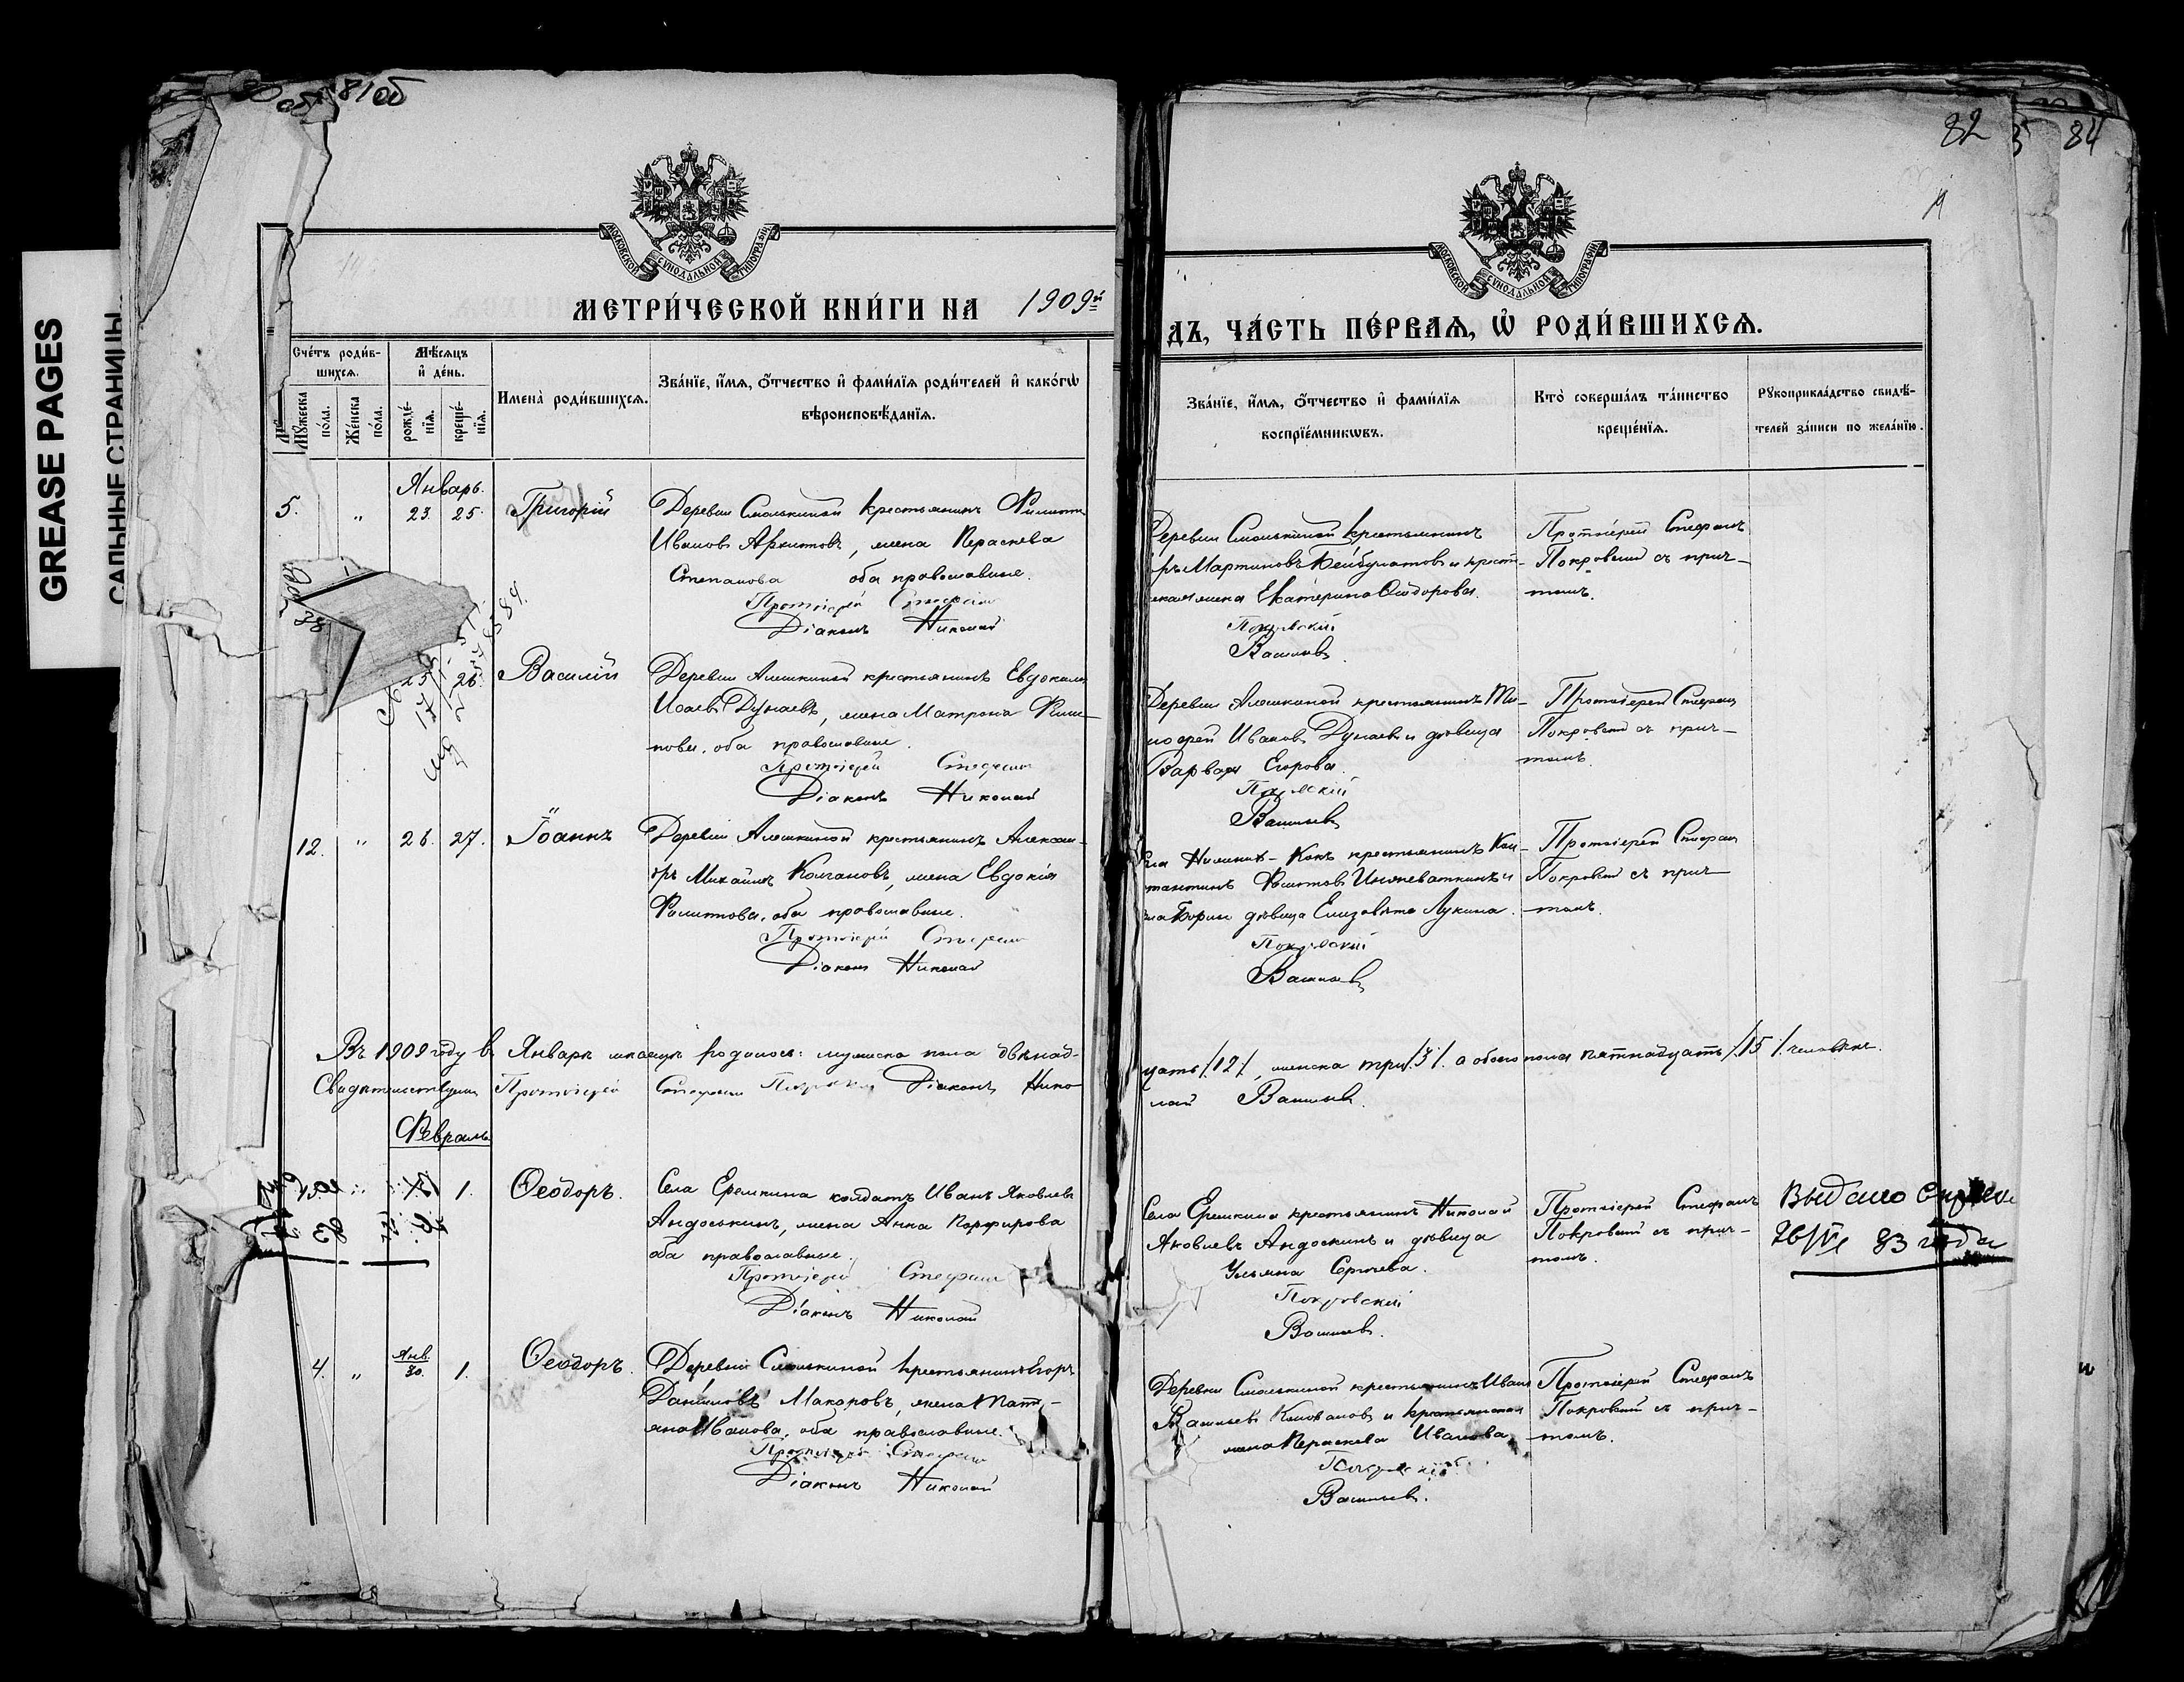 GREASE PAGES
САЛЬНЫЕ СТРАНИЦЫ
81 об
82
84
МОСКОВСКОЙ СУНОДАЛЬНОЙ ТИПОГРАФІИ
МОСКОВСКОЙ СУНОДАЛЬНОЙ ТИПОГРАФІИ
МЕТРИ́ЧЕСКОЙ КНИ́ГИ НА 1909й
ДЪ, ЧА́СТЬ ПЕ́РВАѦ, Ѡ҆ РОДИ́ВШИХСѦ.
Сче́тъ роди́в-
шихсѧ.
Мѣ́сѧцъ
и҆ де́нь.
Мꙋ́жеска
по́ла.
Же́нска
по́ла.
рожде́-
нїѧ.
креще́-
нїѧ.
Имена̀ роди́вшихсѧ.
Зва́нїе, и҆́мѧ, ѻ҆́тчество и҆ фами́лїѧ роди́телей и҆ како́гѡ
вѣроисповѣ́данїѧ.
Зва́нїе, и҆́мѧ, ѻ҆́тчество и҆ фами́лїѧ
воспрїе́мникѡвъ.
Кто̀ соверша́лъ та́инство
креще́нїѧ.
Рꙋкоприкла́дство свидѣ́-
телей за́писи по жела́нїю.
Январь.
5. " 23. 25. Григорій
Деревни Смолькиной крестьянинъ Филиппъ
Ивановъ Архиповъ, жена Параскева
Степанова оба православные.
Протоіерей Стефанъ
Діаконъ Николай
Деревни Смолькиной крестьянинъ
Мартиновъ и крест-
жена Екатерина Ѳеодорова.
Покровскій
Васильевъ.
Протоіерей Стефанъ
Покровскій съ прич-
томъ.
26. Василій
Деревни Алешкиной крестьянинъ Евдокимъ
Исаевъ Дунаевъ, жена Матрона Филип-
пова, оба православные.
Протоіерей Стефанъ
Діаконъ Николай
Деревни Алешкиной крестьянинъ Ти-
моѳей Ивановъ Дунаевъ и дѣвица
Варвара Егорова.
Покровскій
Васильевъ
Протоіерей Стефанъ
Покровскій съ прич-
томъ.
12. " 26. 27. Іоаннъ
Деревни Алешкиной крестьянинъ Алексан-
дръ Михайловъ Колгановъ, жена Евдокія
Филиппова, оба православные.
Протоіерей Стефанъ
Діаконъ Николай
крестьянинъ Кон-
стантинъ Филиповъ и
дѣвица Елизавета Лукина.
Покровскій
Васильевъ
Протоіерей Стефанъ
Покровскій съ прич-
томъ.
Въ 1909 году въ Январѣ мѣсяцѣ родилось: мужеска пола двѣнад-
цать /12/, женска три /3/. а обоего пола пятнадцать /15/ человѣкъ.
Свидѣтельствуемъ Протоіерей Стефанъ Покровскій Діаконъ Нико-
лай Васильевъ.
Февраль
1. Ѳеодоръ.
Села Еремкина солдатъ Иванъ Яковлевъ
Андоськинъ, жена Анна Порфирова
оба православные.
Протоіерей Стефанъ
Діаконъ Николай
Села Еремкина крестьянинъ Николай
Яковлевъ Андоскинъ и дѣвица
Ульяна Сергѣева.
Покровскій
Васильевъ.
Протоіерей Стефанъ
Покровскій съ прич-
томъ.
Выдано
83 года
4. " Янв. 30. 1. Ѳеодоръ.
Деревни Смолькиной крестьянинъ Егоръ
Даниловъ Макаровъ, жена Тать-
яна Иванова, оба православные.
Протоіерей Стефанъ
Діаконъ Николай
Деревни Смолькиной крестьянинъ Иванъ
Васильевъ и крестьянская
жена Параскева Иванова
Покровскій
Васильевъ.
Протоіерей Стефанъ
Покровскій съ прич-
томъ.